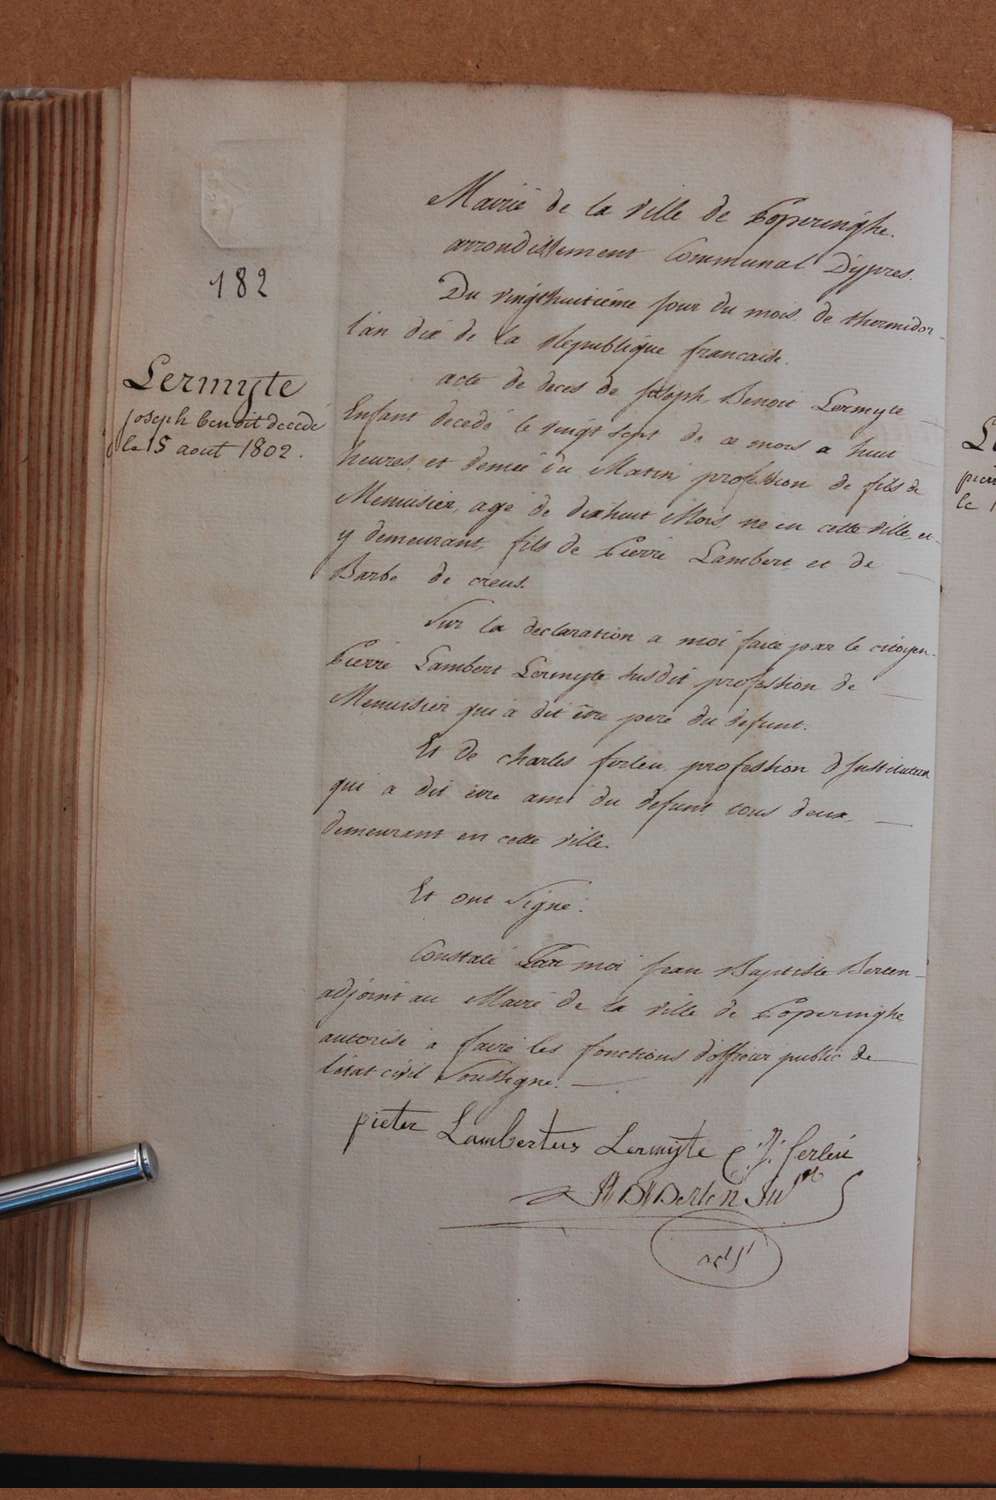 Mairie de la ville de Poperinghe.
arrondissement Communal D'ypres.
Du vingthuitieme jour du mois de thermidor
l'an dix de la Republique francaise.
acte de deces de joseph Benoit Lermyte
Enfant decedé le vingt sept de ce mois a huit
heures et demie du Matin profession de fils de
Menuisier, agé de dixhuit Mois né en cette ville, et
y demeurant, fils de Pierre Lambert et de
Barbe de creus.
Sur la declaration a moi faite par le citoyen
Pierre Lambert Lermyte susdit profession de
Menuisier qui a dit être pere du defunt.
Et de charles forleu profession d'Instituteur
qui a dit etre ami du defunt tous deux
demeurant en cette ville.
Et ont signé.
Constaté Par moi fran Baptiste Berten
adjoint au Maire de la ville de Poperinghe
autorisé a faire les fonctions d'officier public de
l'état civil Soussigné.
pieter Lambertus Lermyte C: J: ferleu
Berten
182
Lermyte
joseph benoit decedé
le 15 aout 1802.
L
pier
le 1